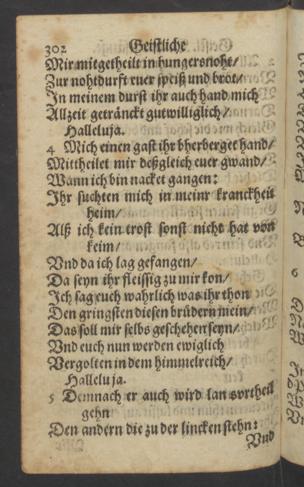 302 Geistliche
Mir mitgetheilt in hungersnoht/
Zur nohtdurft ewer speiß und brot/
In meinem durst ihr auch hand mich
Allzeit getränckt gutwilliglich/
Halleluja.
4 Mich einen gast ihr bherberget hand/
Mittheilet mir deßgleich euer gwand/
Wann ich bin nacket gangen:
Ihr suchten mich in meinr kranckheit
heim/
Alß ich kein trost sonst nicht hat von
keim/
Vnd da ich lag gefangen/
Da seyn ihr fleissig zu mir kon/
Ich sag euch wahrlich was ihr thon
Den gringsten diesen brüdern mein/
Das soll mir selbs geschehen seyn/
Vnd euch nun werden ewiglich
Vergolten in dem himmelreich/
Halleluja.
5 Demnach er auch wird lan s vrtheil
gehn
Den andern die zu der lincken stehn:
Vnd